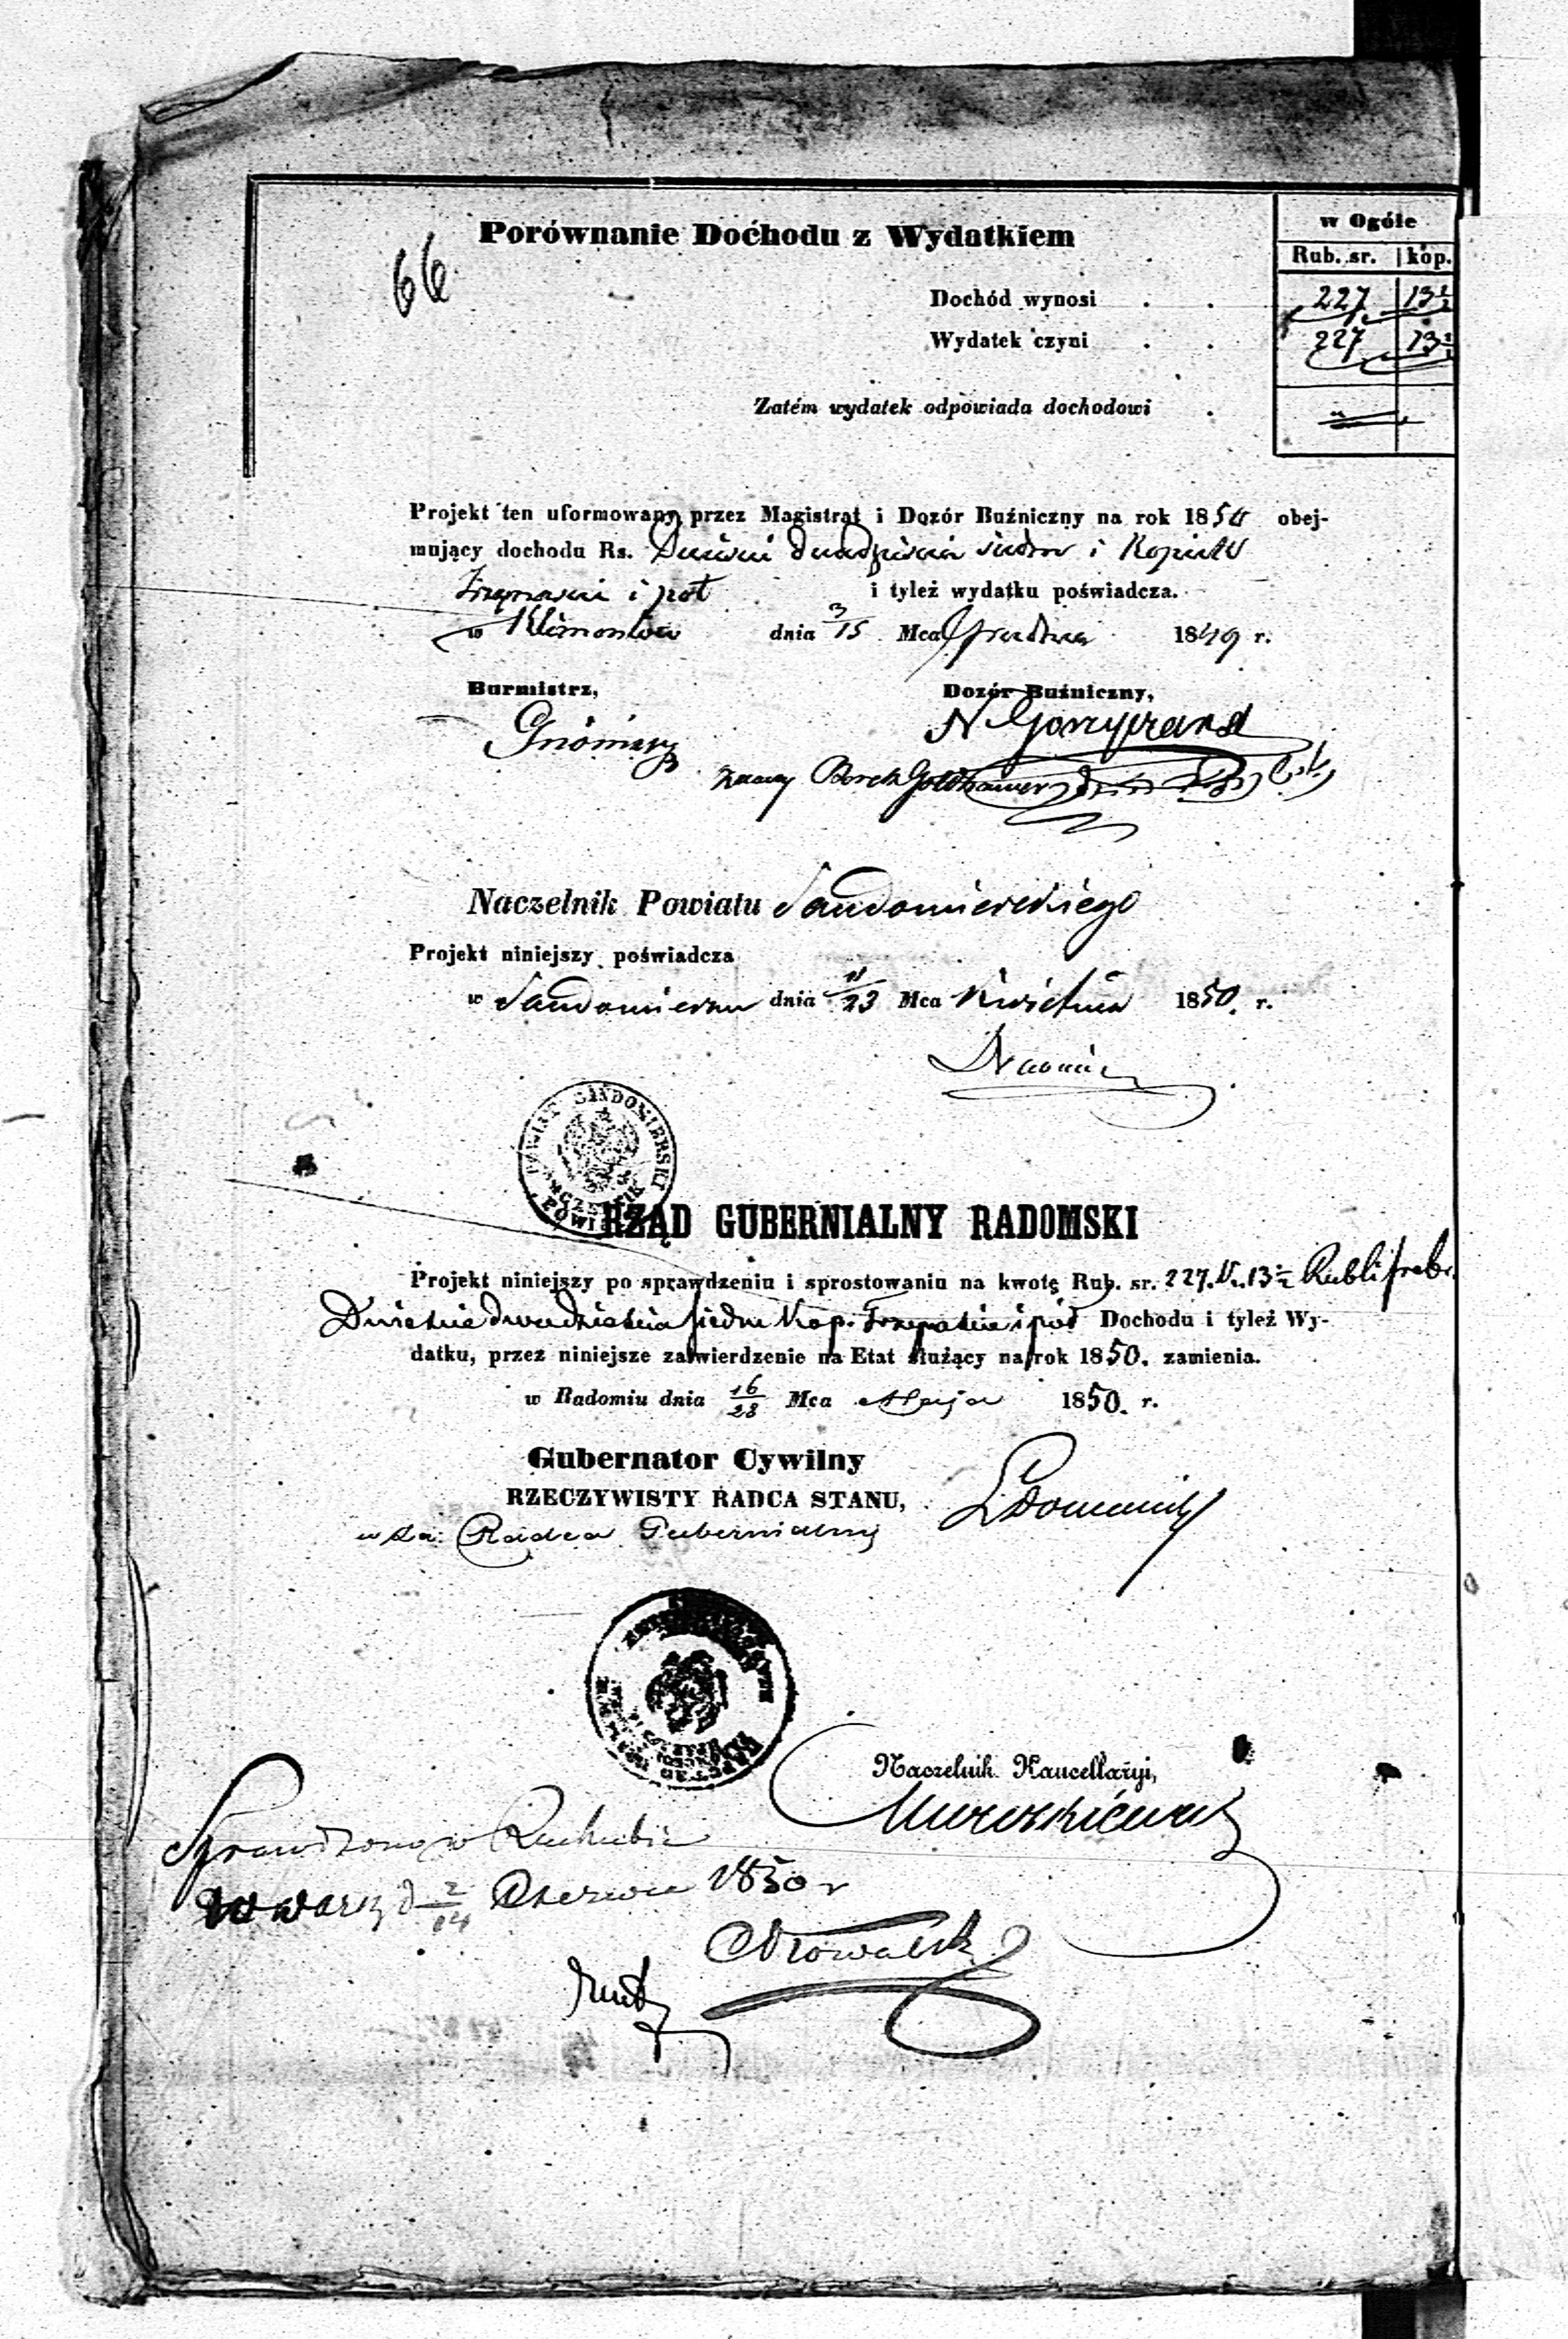 66
Porównanie Dochodu z Wydatkiem
w Ogóle
Rub. sr. kop.
Dochód wynosi . . 227 13½
Wydatek czyni . . 227 13½
Zatém wydatek odpowiada dochodowi .
Projekt ten uformowany przez Magistrat i Dozór Buźniczny na rok 1850 obej-
mujący dochodu Rs. Dwieście dwadzieścia siedm i Kopiek
Trzynaście i pół i tyleż wydatku poświadcza.
w Klimontów dnia 3/15 Mca Grudnia 1849 r.
Burmistrz, Dozór Buźniczny,
Berek Goldhamer
Naczelnik Powiatu Sandomierskiego
Projekt niniejszy poświadcza
w Sandomierzu dnia 11/23 Mca Kwietnia 1850. r.
POWIAT SANDOMIERSKI
NACZELNIK POWIATU
RZĄD GUBERNIALNY RADOMSKI
Projekt niniejszy po sprawdzeniu i sprostowaniu na kwotę Rub. sr. 227. k. 13½ Rubli srebr.
Dwieście dwadzieścia siedm Kop. Trzynaście i pół Dochodu i tyleż Wy-
datku, przez niniejsze zatwierdzenie na Etat służący na rok 1850. zamienia.
w Radomiu dnia 16/28 Mca Maja 1850. r.
Gubernator Cywilny
RZECZYWISTY RADCA STANU,
w za. Radca Gubernialny
Naczelnik Kancellaryi,
Sprawdzono w Rachubie
w Warsz d 2/14 Czerwca 1850 r